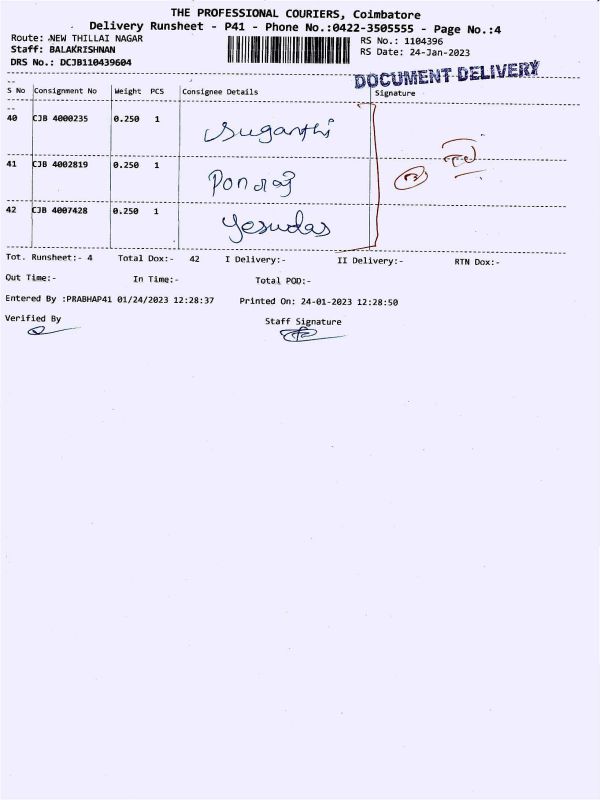 THE PROFESSIONAL COURIERS, Coimbatore
Delivery Runsheet - P41 - Phone No.:0422-3505555 - Page No.:4
Route: NEW THILLAI NAGAR
RS No.: 1104396
Staff: BALAKRISHNAN
RS Date: 24-Jan-2023
DRS No.: DCJB110439604
DOCUMENT DELIVERY
S No Consignment No Weight PCS Consignee Details Signature
40 CJB 4000235 0.250 1 Suganthi
41 CJB 4002819 0.250 1 Ponraj
42 CJB 4007428 0.250 1 Yesudas
Tot. Runsheet:- 4 Total Dox:- 42 I Delivery:- II Delivery:- RTN Dox:-
Out Time:- In Time:- Total POD:-
Entered By :PRABHAP41 01/24/2023 12:28:37 Printed On: 24-01-2023 12:28:50
Verified By Staff Signature